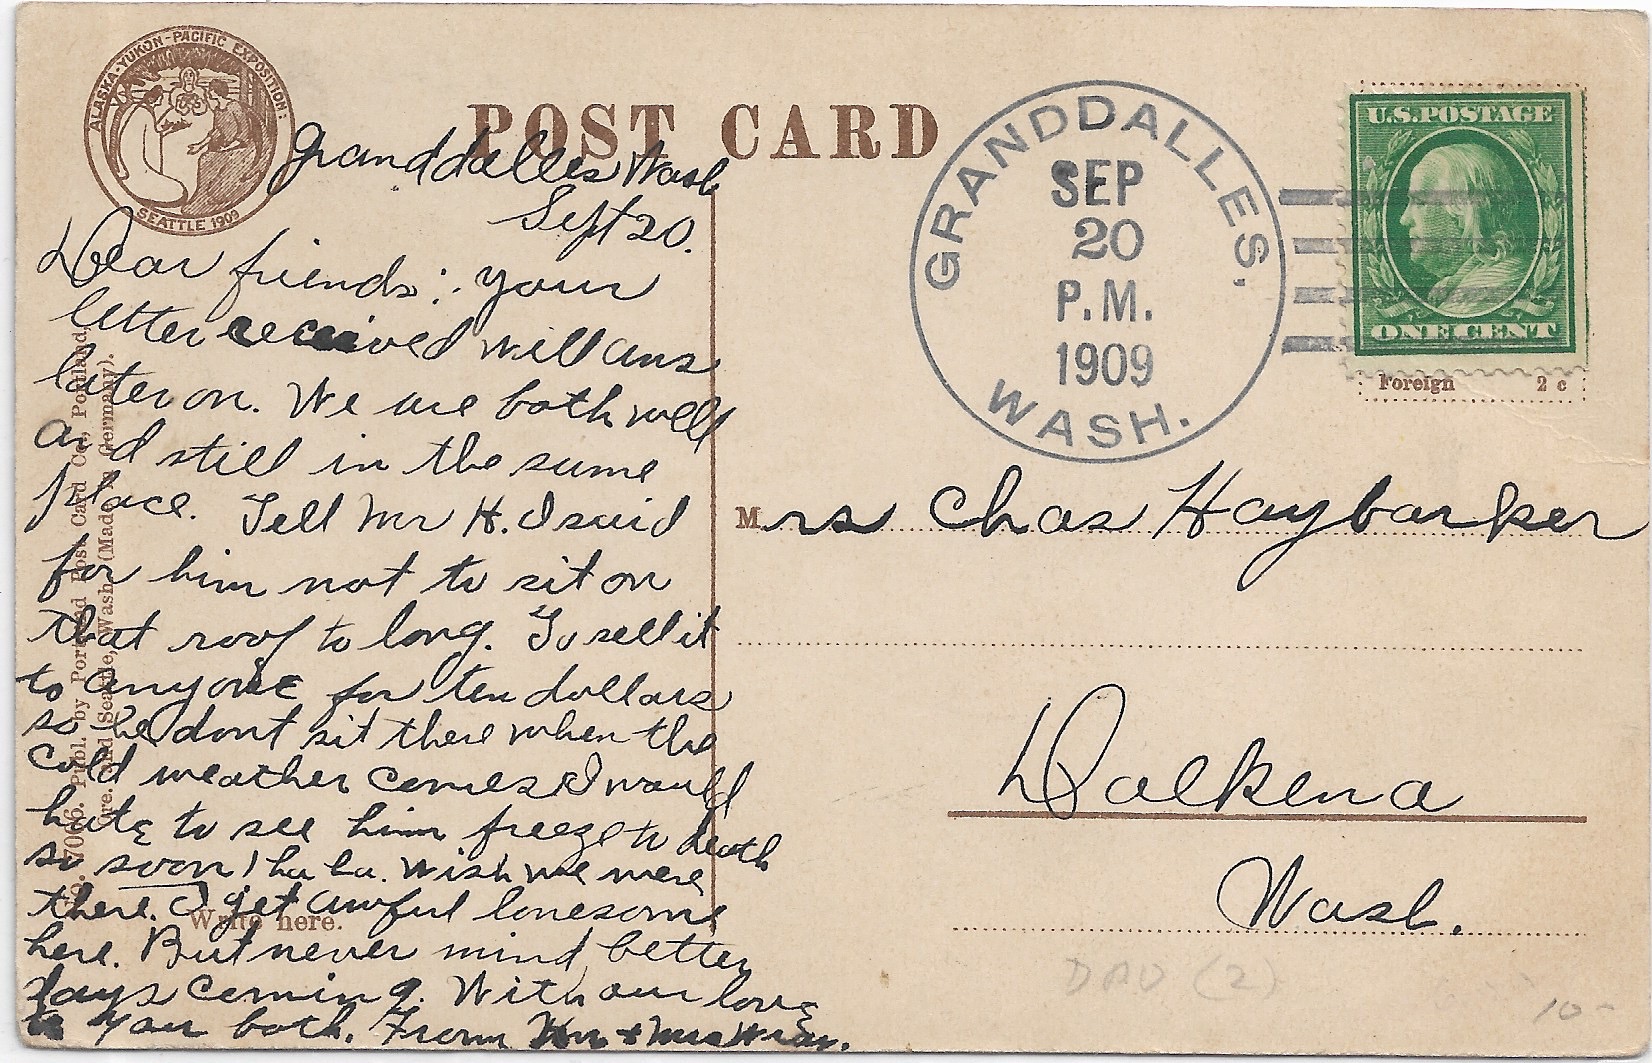 ALASKA-YUKON-PACIFIC EXPOSITION:
SEATTLE 1909
POST CARD
GRANDDALLES,
SEP
20
P.M.
1909
WASH.
U.S.POSTAGE
ONE CENT
Foreign 2 c
Granddalles Wash
Sept 20.
Dear friends: your
letter received will ans
later on. We are both well
and still in the same
place. Tell Mr H. I said
for him not to sit on
that roof to long. To sell it
to anyone for ten dollars
so he dont sit there when the
cold weather comes I would
hate to see him freeze to death
so soon ha ha. Wish we were
there. I get awful lonesome
here. But never mind better
days coming. With our love
to you both. From & Mrs
Write here.
No. 7066. Publ. by Portland Post Card Co., Portland,
Ore. and Seattle, Wash. (Made in Germany).
Mrs Chas Haybarker
Dalkena
Wash.
DAD (2)
10-